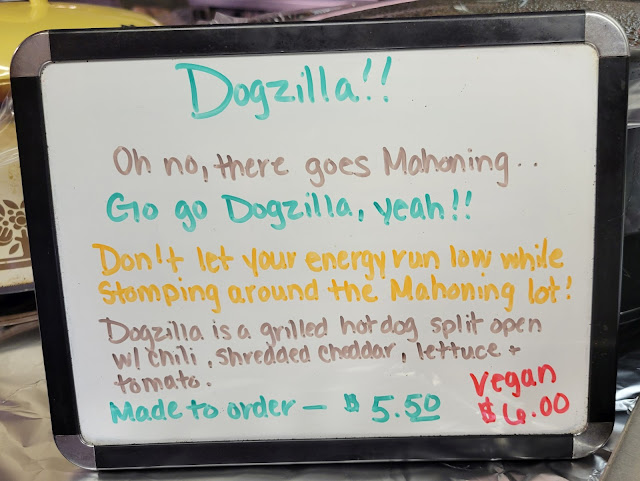 Dogzilla!!
Oh no, there goes Mahoning..
Go go Dogzilla, yeah!!
Don't let your energy run low while
stomping around the Mahoning lot!
Dogzilla is a grilled hotdog split open
w/ chili, shredded cheddar, lettuce +
tomato.
Made to order — $5.50
Vegan
$6.00